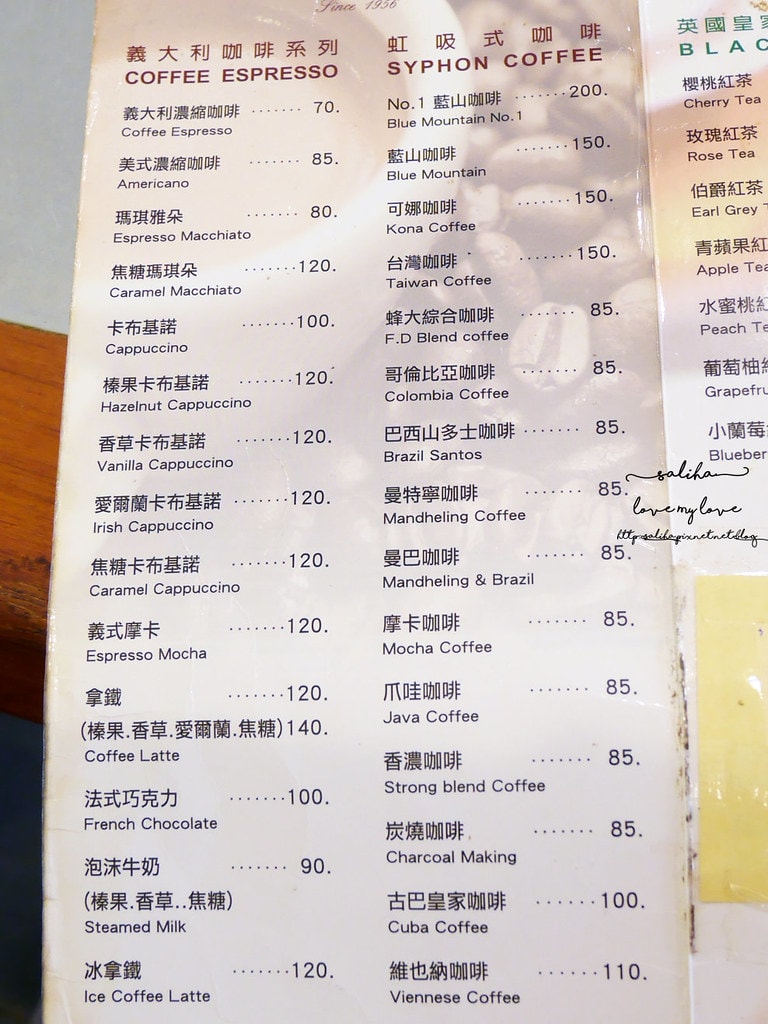 Since 1956
義大利咖啡系列
COFFEE ESPRESSO
義大利濃縮咖啡 ······· 70.
Coffee Espresso
美式濃縮咖啡 ······· 85.
Americano
瑪琪雅朵 ······· 80.
Espresso Macchiato
焦糖瑪琪朵 ·······120.
Caramel Macchiato
卡布基諾 ·······100.
Cappuccino
榛果卡布基諾 ·······120.
Hazelnut Cappuccino
香草卡布基諾 ·······120.
Vanilla Cappuccino
愛爾蘭卡布基諾 ·······120.
Irish Cappuccino
焦糖卡布基諾 ·······120.
Caramel Cappuccino
義式摩卡 ·······120.
Espresso Mocha
拿鐵 ·······120.
(榛果.香草.愛爾蘭.焦糖)140.
Coffee Latte
法式巧克力 ·······100.
French Chocolate
泡沫牛奶 ······· 90.
(榛果.香草..焦糖)
Steamed Milk
冰拿鐵 ·······120.
Ice Coffee Latte
虹吸式咖啡
SYPHON COFFEE
No.1 藍山咖啡 ·······200.
Blue Mountain No.1
藍山咖啡 ·······150.
Blue Mountain
可娜咖啡 ·······150.
Kona Coffee
台灣咖啡 ·······150.
Taiwan Coffee
蜂大綜合咖啡 ······· 85.
F.D Blend coffee
哥倫比亞咖啡 ······· 85.
Colombia Coffee
巴西山多士咖啡 ······· 85.
Brazil Santos
曼特寧咖啡 ······· 85.
Mandheling Coffee
曼巴咖啡 ······· 85.
Mandheling & Brazil
摩卡咖啡 ······· 85.
Mocha Coffee
爪哇咖啡 ······· 85.
Java Coffee
香濃咖啡 ······· 85.
Strong blend Coffee
炭燒咖啡 ······· 85.
Charcoal Making
古巴皇家咖啡 ······100.
Cuba Coffee
維也納咖啡 ······110.
Viennese Coffee
英國皇家
BLAC
櫻桃紅茶
Cherry Tea
玫瑰紅茶
Rose Tea
伯爵紅茶
Earl Grey T
青蘋果紅
Apple Tea
水蜜桃紅
Peach Te
葡萄柚
Grapefru
小蘭莓
Blueber
saliha
love my love
http:saliha.pixnet.net/blog